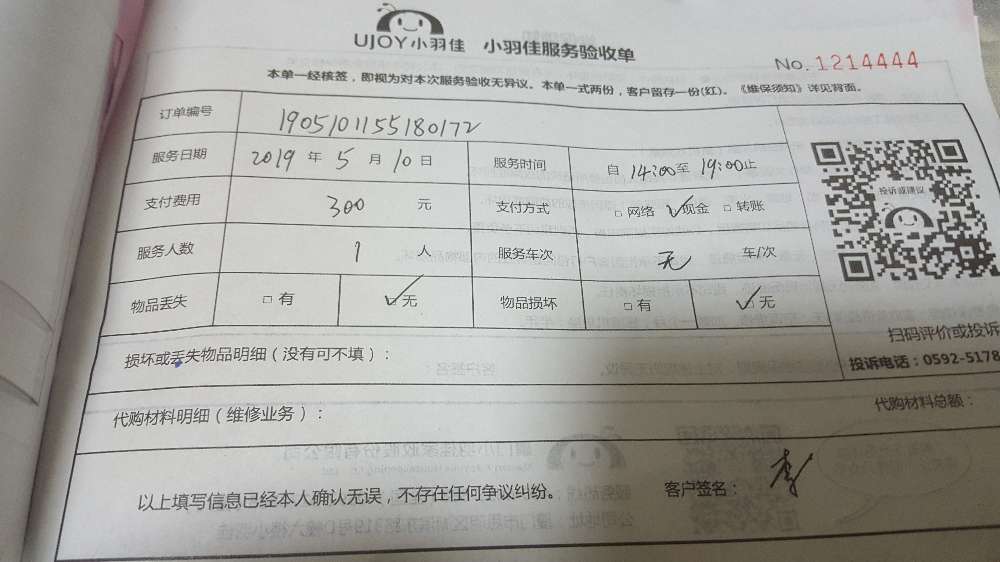 UJOY小羽佳 小羽佳服务验收单
No. 1214444
本单一经核签，即视为对本次服务验收无异议。本单一式两份，客户留存一份(红)。《维保须知》详见背面。
订单编号 1905101155180172
服务日期 2019 年 5 月 10 日 服务时间 自 14:00 至 19:00 止
投诉或建议
支付费用 300 元 支付方式 □ 网络 ✓现金 □ 转账
服务人数 1 人 服务车次 无 车/次
物品丢失 □ 有 ✓无 物品损坏 □ 有 ✓无
扫码评价或投诉
损坏或丢失物品明细（没有可不填）：
投诉电话：0592-5178
代购材料明细（维修业务）：
代购材料总额：
以上填写信息已经本人确认无误，不存在任何争议纠纷。 客户签名： 李